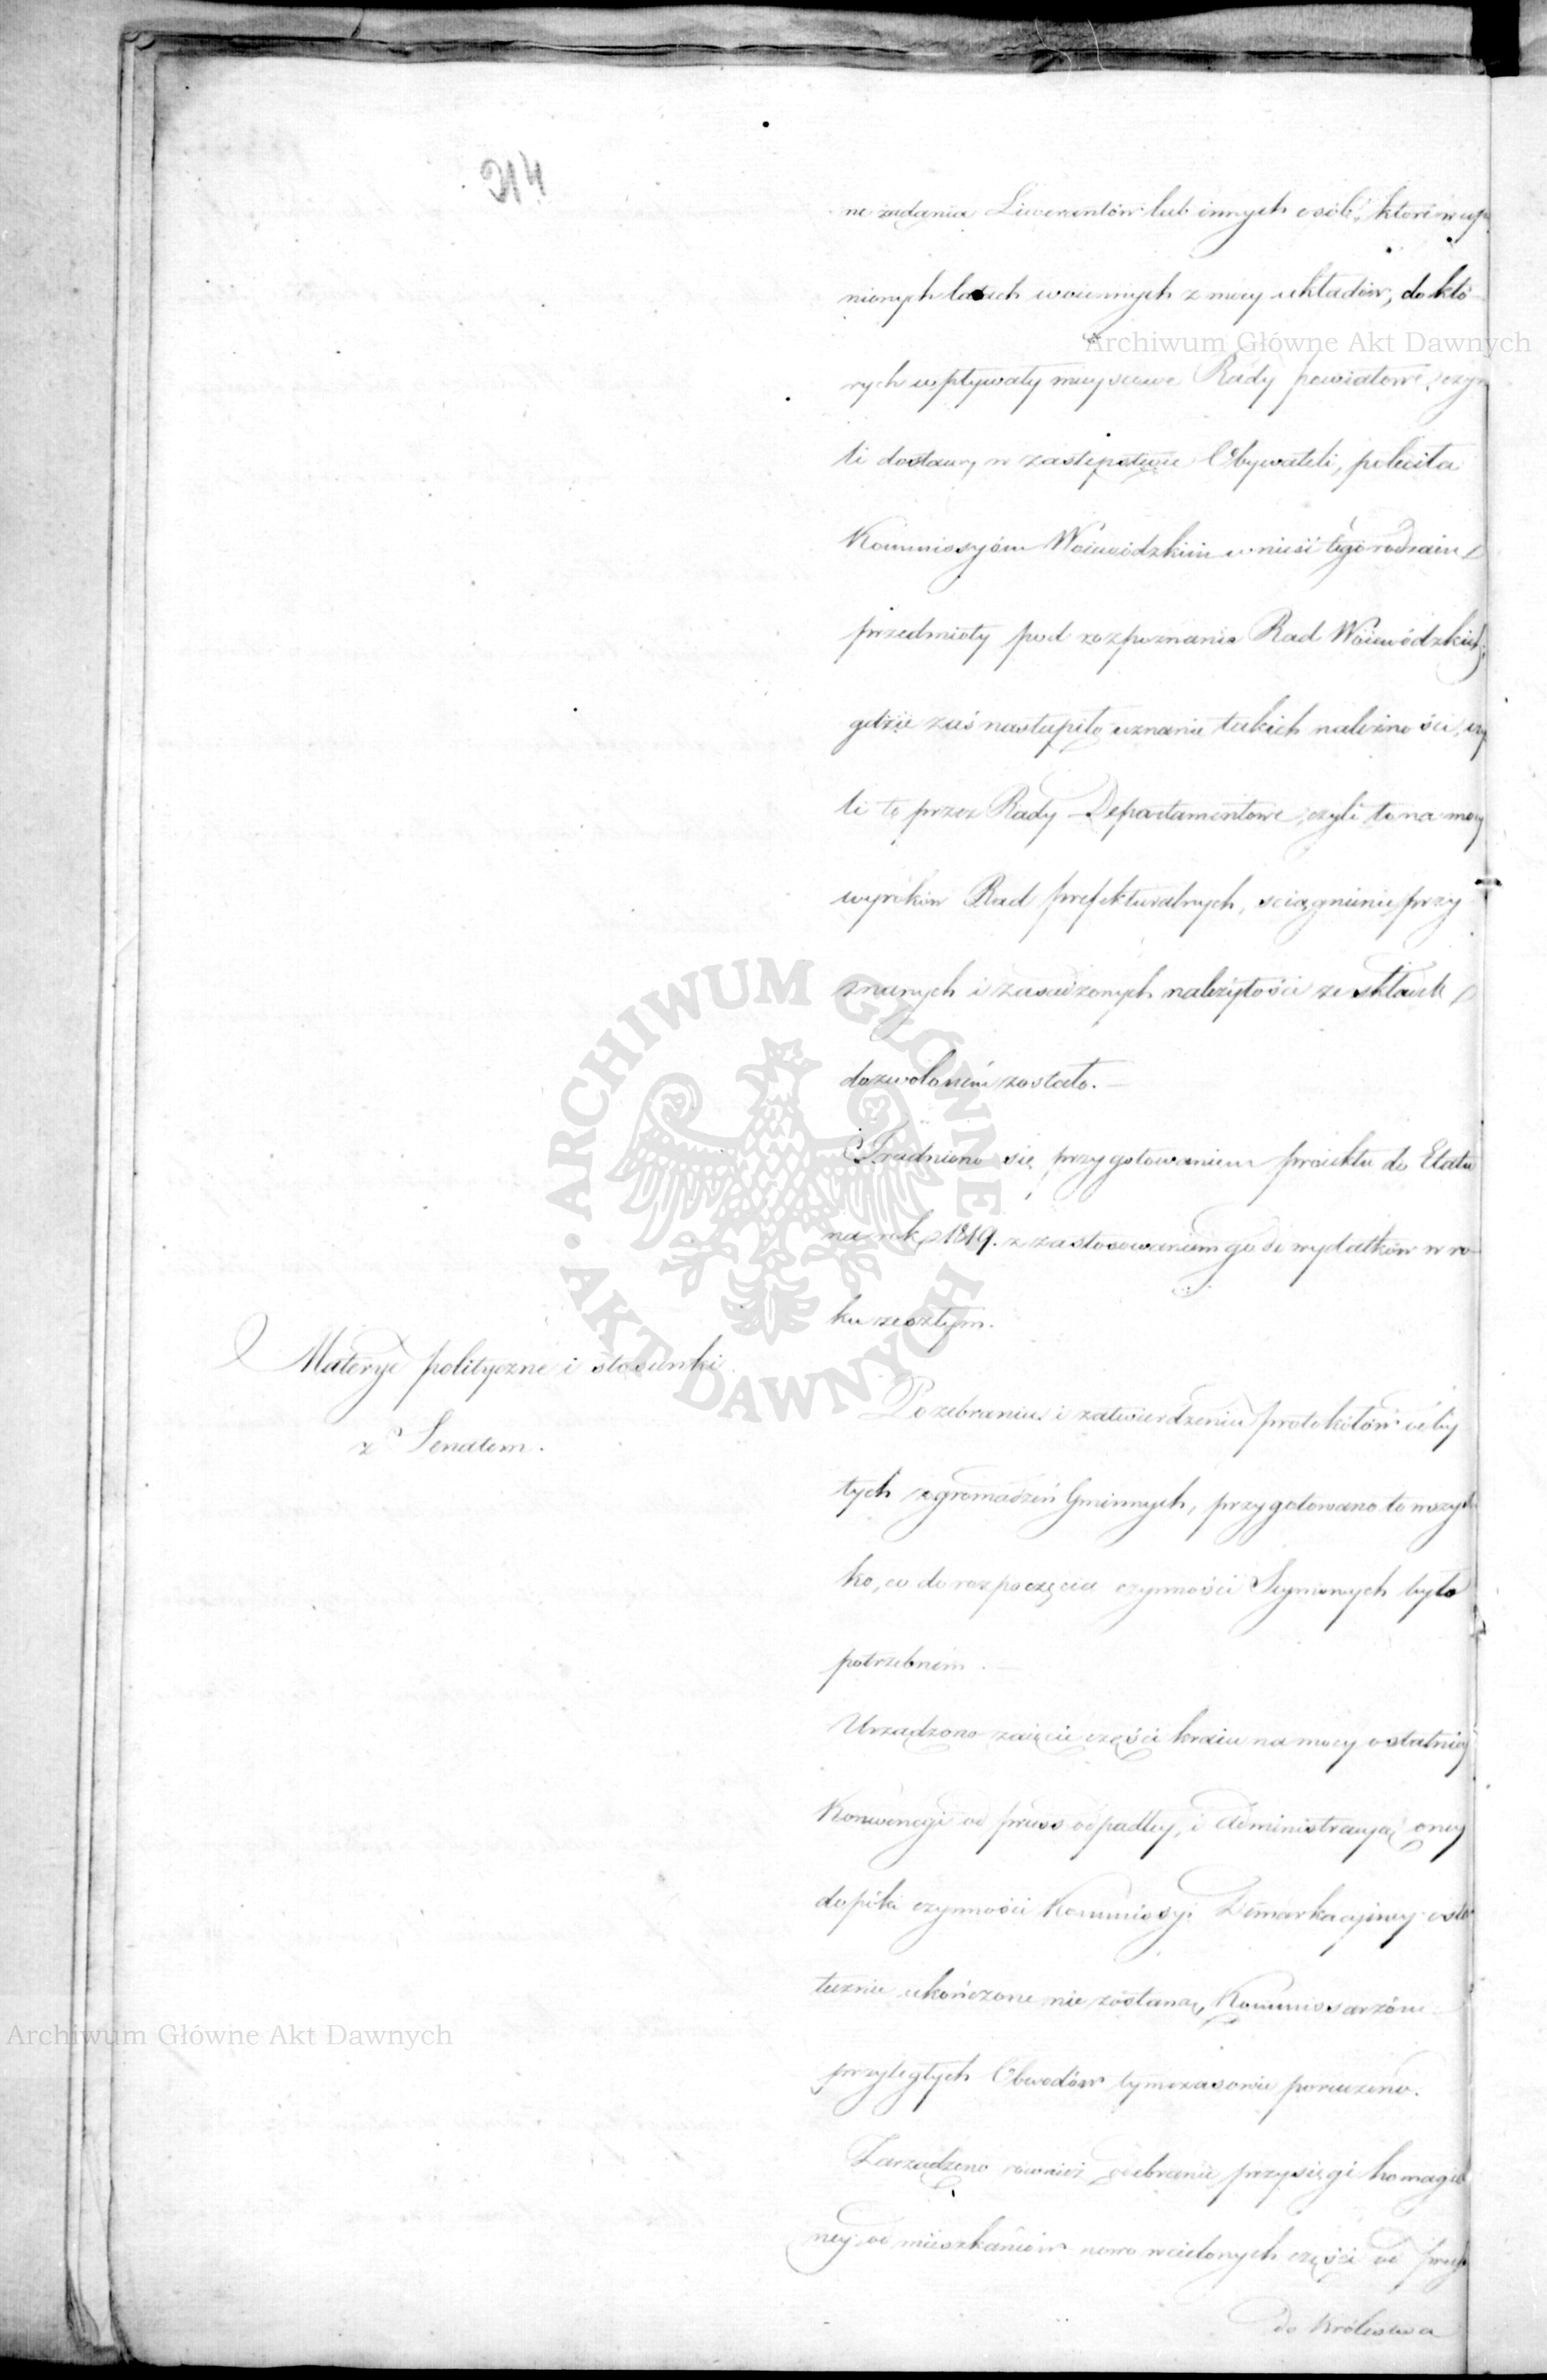 214
ne żądania Liwerantów lub innych osób, które w up
nionych latach woiennych z mocy układów, do któ
Archiwum Główne Akt Dawnych
rych wpływały mieyscowe Rady powiatowe, czyni
li dostawy w zastępstwie Obywateli, poleciła
Kommissyóm Woiewódzkim wnieść tego rodzaiu
przedmioty pod rozpoznanie Rad Woiewódzkich;
gdzie zaś nastąpiło uznanie takich należności, czy
li to przez Rady Departamentowe, czyli to na mocy
wyroków Rad prefekturalnych, ściągnienie przy
znanych i zasądzonych należytości ze składek
dozwoloném zostało.
Trudniono się przygotowaniem proiektu do Etatu
na rok 1819. z zastosowaniem go do wydatków w ro
ku zeszłym.
Materye polityczne i stosunki
z Senatem.
Po zebraniu i zatwierdzeniu protokółów odby
tych zgromadzeń Gminnych, przygotowano to wszyst
ko, co do rozpoczęcia czynności Seymowych było
potrzebném.
Urządzono zaięcie części kraiu na mocy ostatniey
Konwencyi od pruss odpadłey, i administracyą oney
dopóki czynności Kommissyi Demarkacyiney osta
tecznie ukończone nie zostaną, Kommissarzóm
Archiwum Główne Akt Dawnych
przyległych Obwodów tymczasowie poruczono.
Zarządzono również odebranie przysięgi homagial
ney od mieszkańców nowo wcielonych części od
do Królestwa
ARCHIWUM GŁÓWNE AKT DAWNYCH